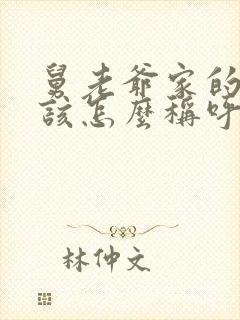 舅老爷家的
该怎麼稱呼
林仲文